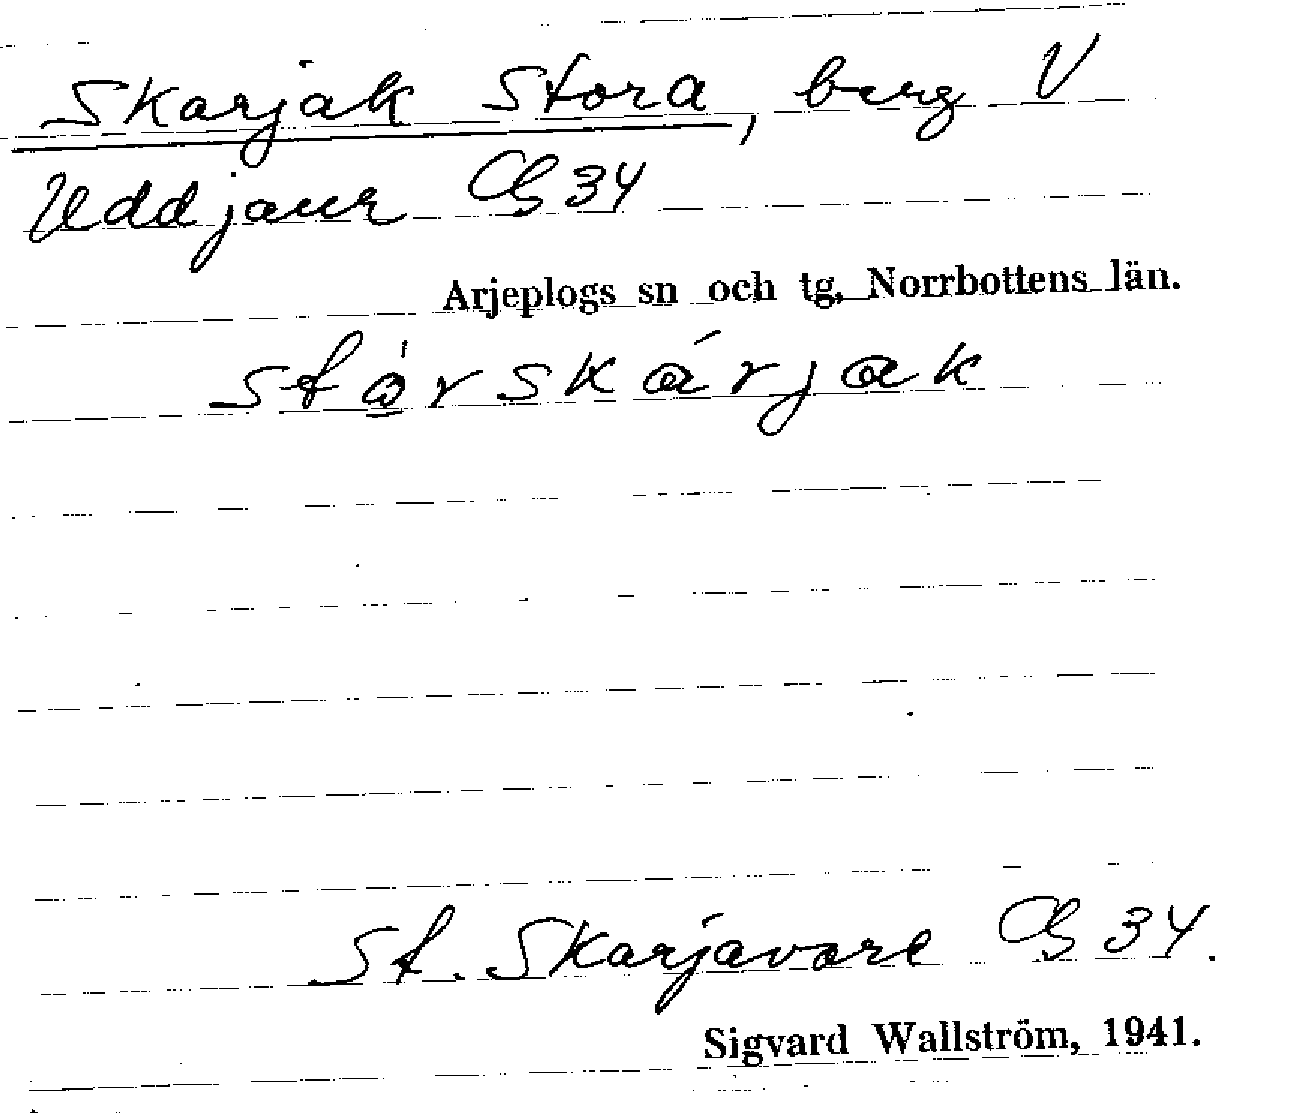 Skarjak Stora, berg V
Uddjaur CG 34
Arjeplogs sn och tg, Norrbottens län.
sto̲̍rskárjak
St. Skarjavare CG 34.
Sigvard Wallström, 1941.